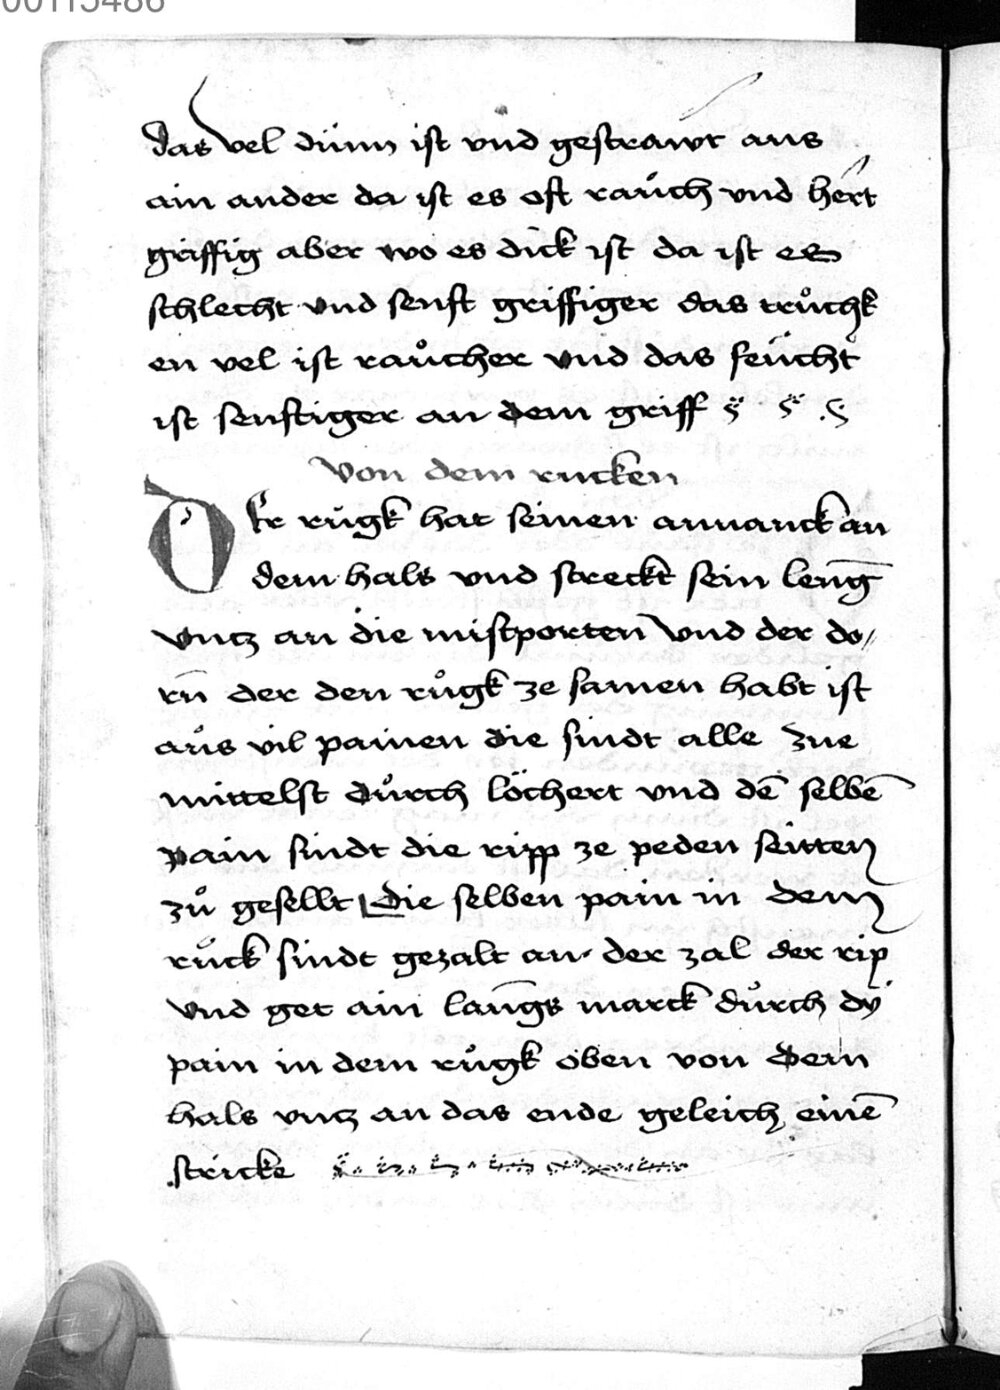 00115486
das vel dünn ist vnd gestrawt aus
ain ander da ist es oft rauͦch vnd hert
griffig aber wo es dick ist da ist es
schlecht vnd senft griffiger das truͦchk
en vel ist rauͦcher vnd das feücht
ist senftiger an dem griff
von dem rucken
Der ruͦgk hat seinen anuanck an
dem hals vnd streckt sein leng̅
vntz an die mistporten vnd der do//
rn̅ der den ruͦgk ze samen habt ist
auͦs vil painen die sindt alle zue
mittelst duͦrch löchert vnd de̅ selbe̅
pain sindt die ripp ze peden seitten
zuͦ gesellt Die selben pain in dem
ruͦck sindt gezalt an der zal der rip
vnd get ain lan̅gs marck duͦrch dÿ
pain in dem ruͦgk oben von dem
hals vntz an das ende geleich eine̅
stricke